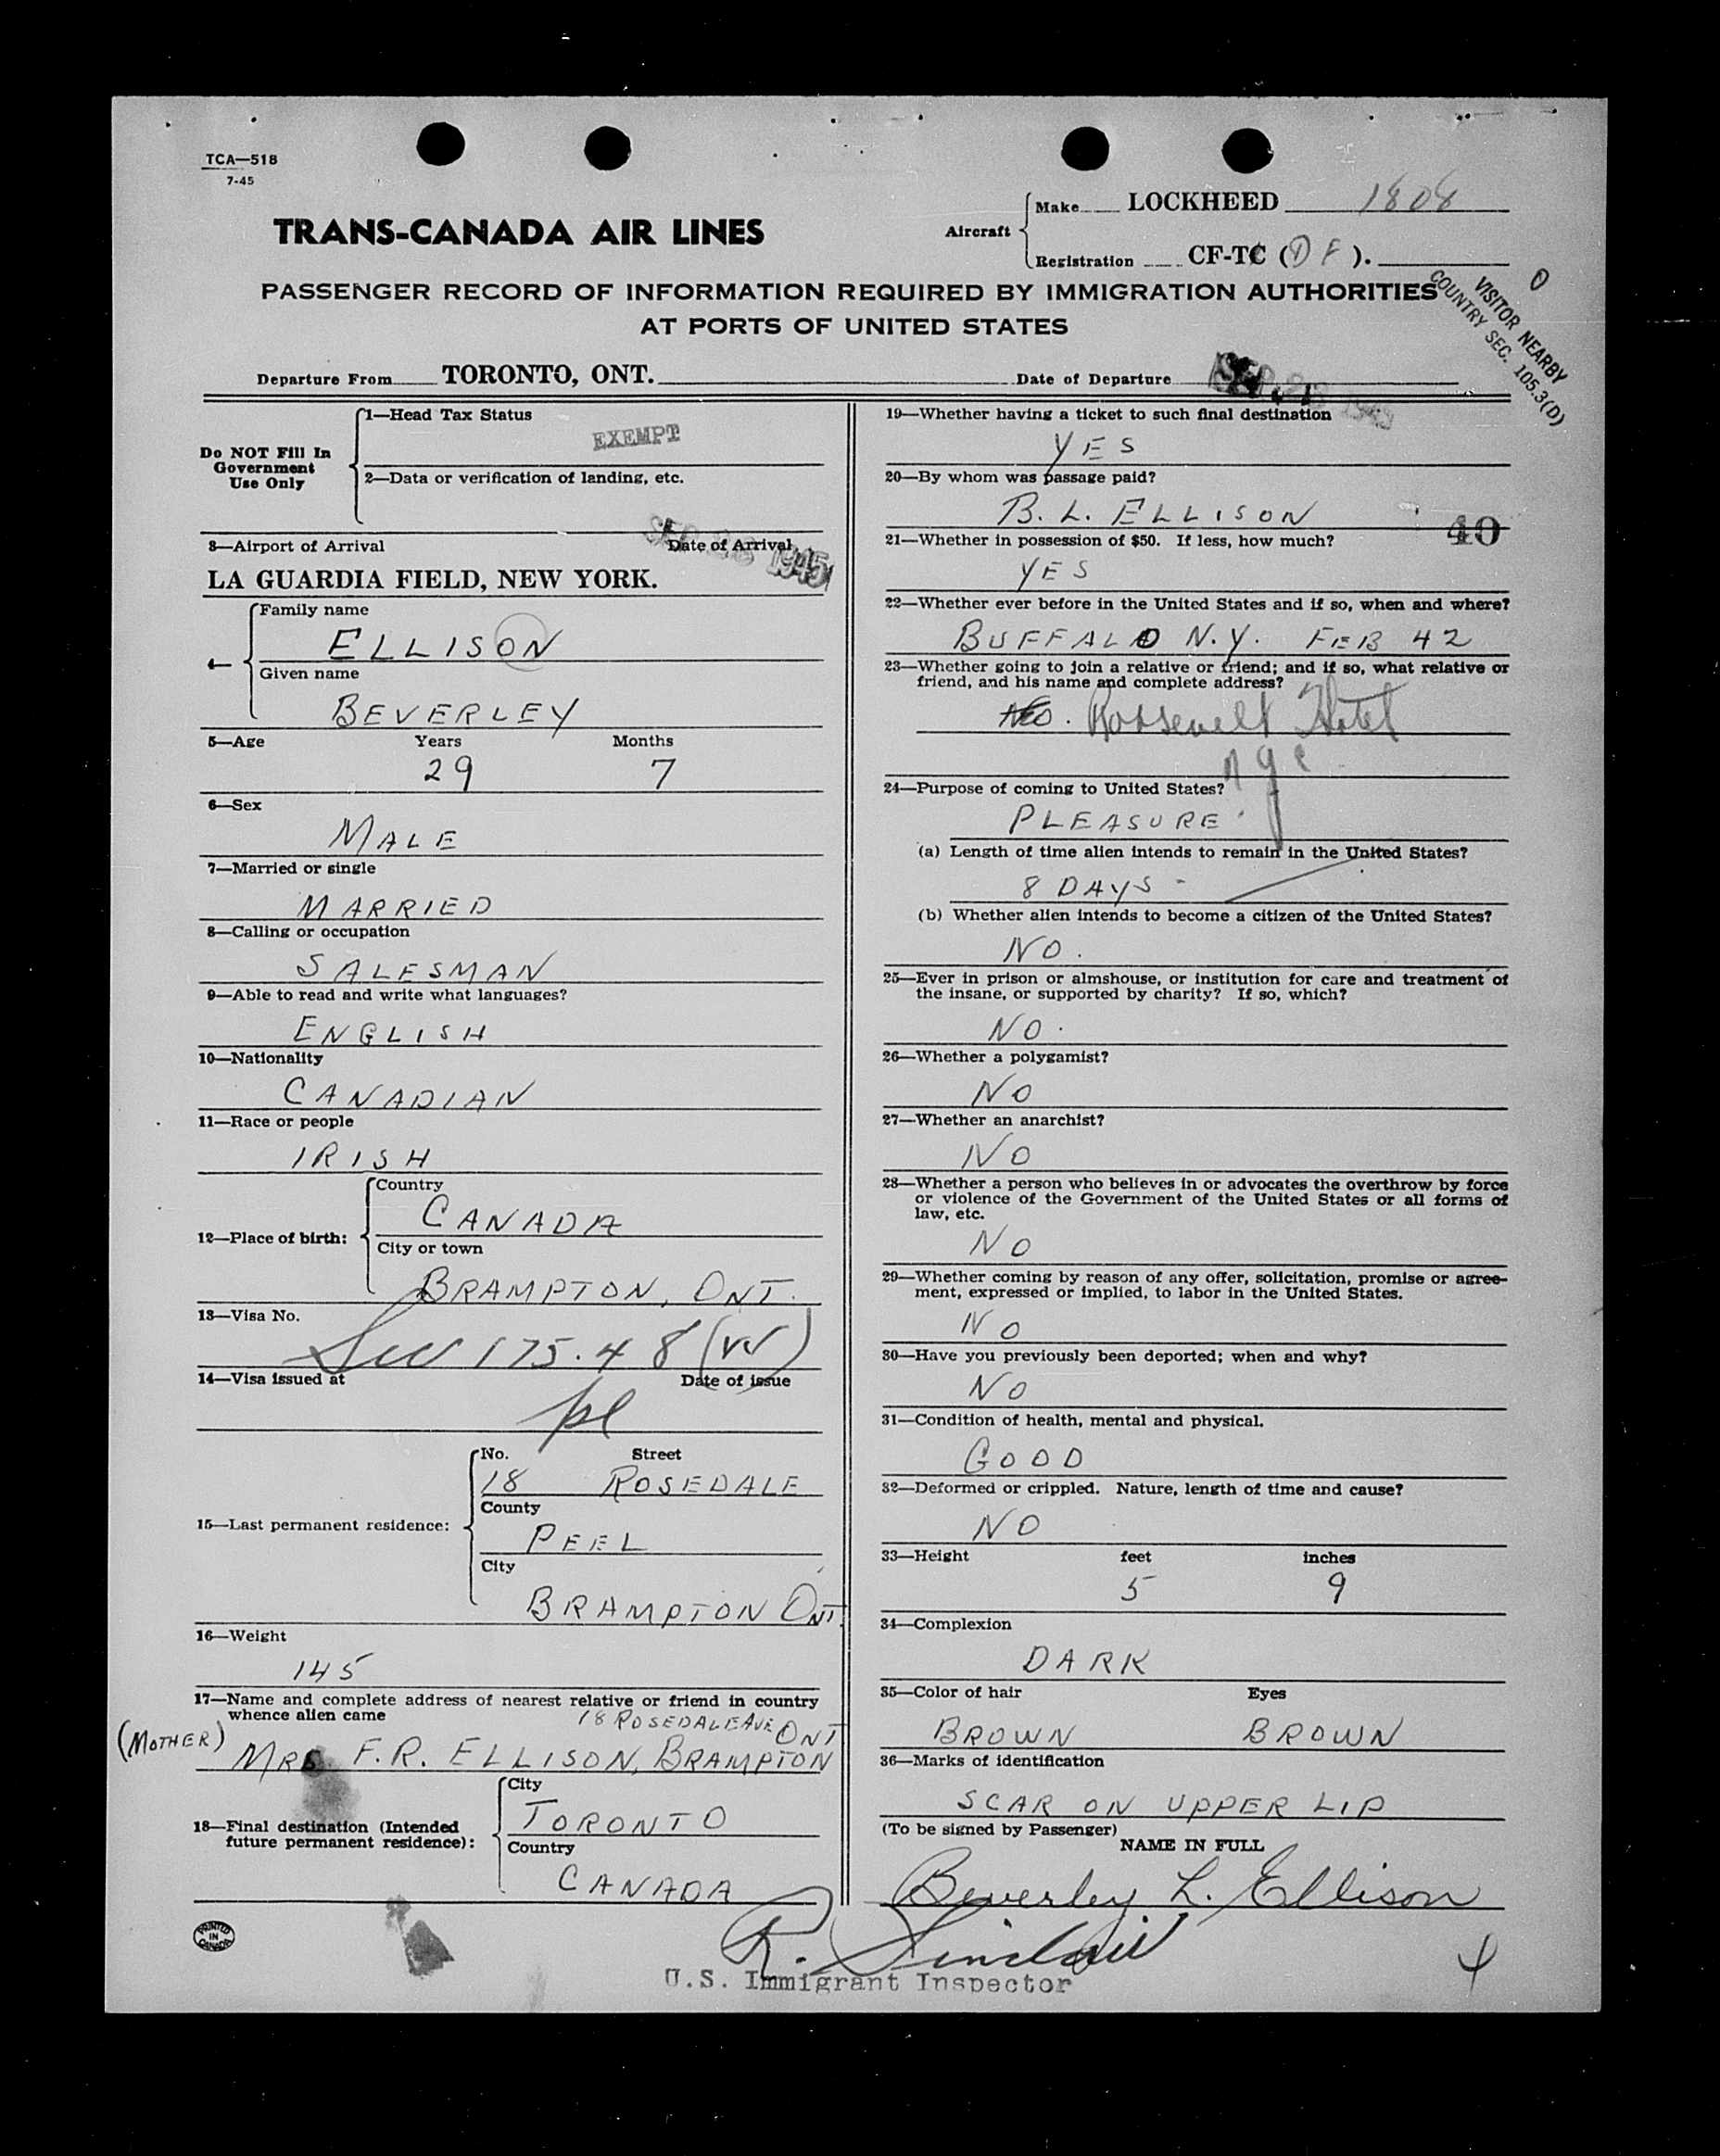 TCA—518
7-45
TRANS-CANADA AIR LINES
Aircraft
Make LOCKHEED 1808
Registration CF-TC (DF).
PASSENGER RECORD OF INFORMATION REQUIRED BY IMMIGRATION AUTHORITIES
AT PORTS OF UNITED STATES
VISITOR NEARBY
COUNTRY SEC. 105.3(D)
Departure From TORONTO, ONT.
Date of Departure SEP 1945
Do NOT Fill In
Government
Use Only
1—Head Tax Status
EXEMPT
2—Data or verification of landing, etc.
3—Airport of Arrival Date of Arrival
SEP 1945
LA GUARDIA FIELD, NEW YORK.
4—
Family name
ELLISON
Given name
BEVERLEY
5—Age Years Months
29 7
6—Sex
MALE
7—Married or single
MARRIED
8—Calling or occupation
SALESMAN
9—Able to read and write what languages?
ENGLISH
10—Nationality
CANADIAN
11—Race or people
IRISH
12—Place of birth:
Country
CANADA
City or town
BRAMPTON, ONT.
13—Visa No.
Sec 175.48 (vv)
14—Visa issued at Date of issue
pl
15—Last permanent residence:
No. Street
18 ROSEDALE
County
PEEL
City
BRAMPTON ONT.
16—Weight
145
17—Name and complete address of nearest relative or friend in country
whence alien came
18 ROSEDALE AVE ONT
(MOTHER) MRS. F.R. ELLISON, BRAMPTON
18—Final destination (Intended
future permanent residence):
City
TORONTO
Country
CANADA
19—Whether having a ticket to such final destination
YES
20—By whom was passage paid?
B. L. ELLISON
40
21—Whether in possession of $50. If less, how much?
YES
22—Whether ever before in the United States and if so, when and where?
BUFFALO N.Y. FEB 42
23—Whether going to join a relative or friend; and if so, what relative or
friend, and his name and complete address?
NO. Roosevelt Hotel
nyc
24—Purpose of coming to United States?
PLEASURE
(a) Length of time alien intends to remain in the United States?
8 DAYS -
(b) Whether alien intends to become a citizen of the United States?
NO.
25—Ever in prison or almshouse, or institution for care and treatment of
the insane, or supported by charity? If so, which?
NO.
26—Whether a polygamist?
NO
27—Whether an anarchist?
NO
28—Whether a person who believes in or advocates the overthrow by force
or violence of the Government of the United States or all forms of
law, etc.
NO
29—Whether coming by reason of any offer, solicitation, promise or agree-
ment, expressed or implied, to labor in the United States.
NO
30—Have you previously been deported; when and why?
NO
31—Condition of health, mental and physical.
GOOD
32—Deformed or crippled. Nature, length of time and cause?
NO
33—Height feet inches
5 9
34—Complexion
DARK
35—Color of hair Eyes
BROWN BROWN
36—Marks of identification
SCAR ON UPPER LIP
(To be signed by Passenger)
NAME IN FULL
Beverley L. Ellison
PRINTED
IN
CANADA
R. Sinclair
U.S. Immigrant Inspector